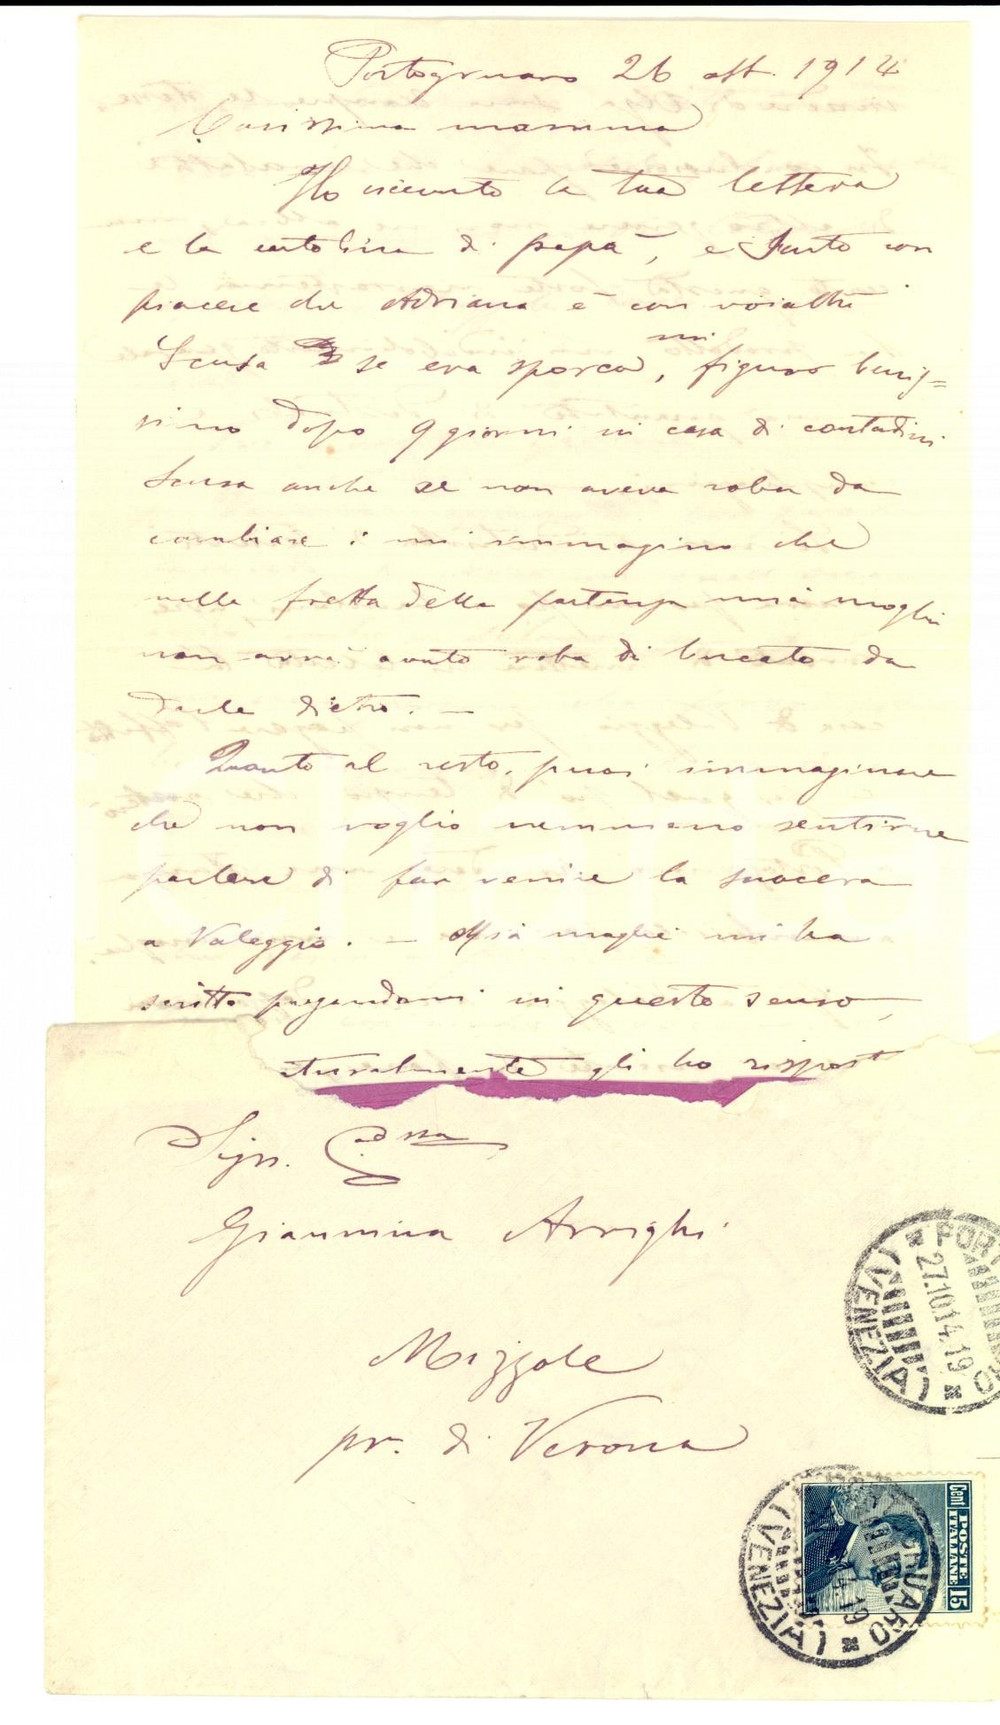 Portogruaro 26 ott. 1914
Carissima mamma
Ho ricevuto la tua lettera
e la cartolina di papà, e sento con
piacere che Adriana è con voialtri
Scusa se era sporca, mi figuro benis=
simo dopo 9 giorni in casa di contadini
Scusa anche se non aveva roba da
cambiare: mi immagino che
nella fretta della partenza mia moglie
non avrà avuto roba di bucato da
darle dietro. —
Quanto al resto, puoi immaginare
che non voglio nemmeno sentirne
parlare di far venire la suocera
a Valeggio. — Mia moglie mi ha
scritto pregandomi in questo senso,
aturalmente gli ho rispost
Sign.
Giannina Arrighi
Mizzole
pr. di Verona
PORT
(VENEZIA)
27.10.14.19
GRUARO
(VENEZIA)
14.19
POSTE ITALIANE
Cent 15